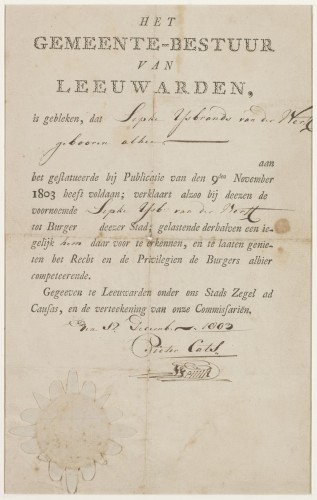 HET
GEMEENTE-BESTUUR
VAN
LEEUWARDEN,
is gebleken, dat Sepke Ysbrands van der
gebooren alhier
aan
het gestatueerde bij Publicatie van den 9den November
1803 heeft voldaan; verklaart alzoo bij deezen de
voornoemde Sepke Ysb van der
tot Burger deezer Stad; gelastende derhalven een ie-
gelijk hem daar voor te erkennen, en te laaten genie-
ten het Recht en de Privilegien de Burgers alhier
competeerende.
Gegeeven te Leeuwarden onder ons Stads Zegel ad
Causas, en de verteekening van onze Commissariën.
Den 12 December 1803
Pieter Cats